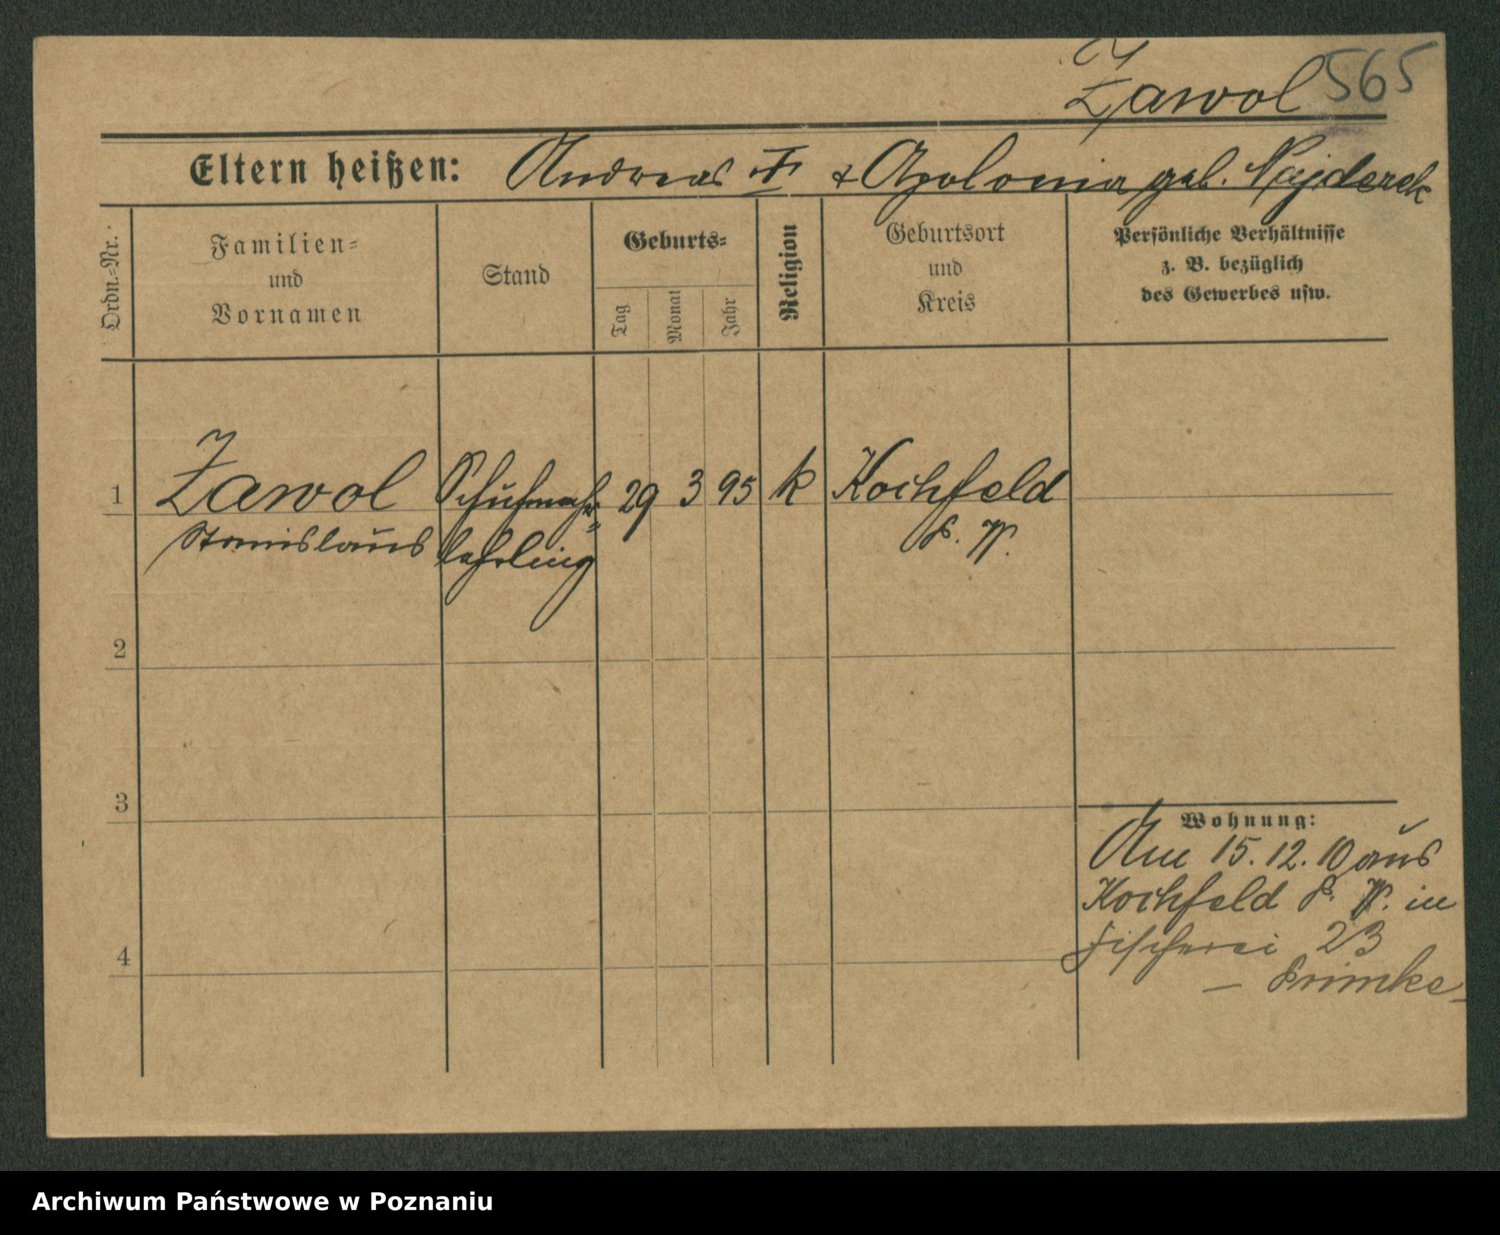 Zawol 565
Eltern heißen: Andreas † & Apolonia geb. Najderek
Ordn.-Nr.
Familien-
und
Vornamen
Stand
Geburts-
Tag
Monat
Jahr
Religion
Geburtsort
und
Kreis
Persönliche Verhältnisse
z. B. bezüglich
des Gewerbes usw.
1 Zawol Schuhmach- 29 3 95 k Kochfeld
Stanislaus lehrling P. W.
2
3
Wohnung:
Am 15. 12. 10 aus
Kochfeld P. W. in
Fischerei 23
4
Archiwum Państwowe w Poznaniu